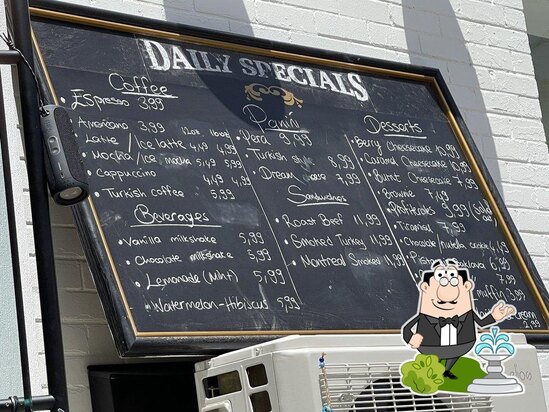 DAILY SPECIALS
Coffee
Espresso 3,99
Americano 3,99
12oz 16oz
Latte / Ice latte 4,49 4,99
Mocha/Ice mocha 5,49 5,99
Cappuccino 4,49 4,99
Turkish coffee 5,99
Beverages
Vanilla milkshake 5,99
Chocolate milkshake 5,99
Lemonade (Mint) 5,99
Watermelon-Hibiscus 5,99
Panini
9,99
Turkish style 8,99
Dream 7,99
Sandwiches
Roast Beef 11,99
Smoked Turkey 11,99
Montreal Smoked 11,99
Desserts
Berry Cheesecake 10,99
Caramel Cheesecake 10,99
Burnt Cheesecake 7,99
Brownie 7,49
9,99
Tiramisu 7,99
Chocolate nutella cookie 4,49
Baklava 6,99
Muffin 3,99
Cream
2,99